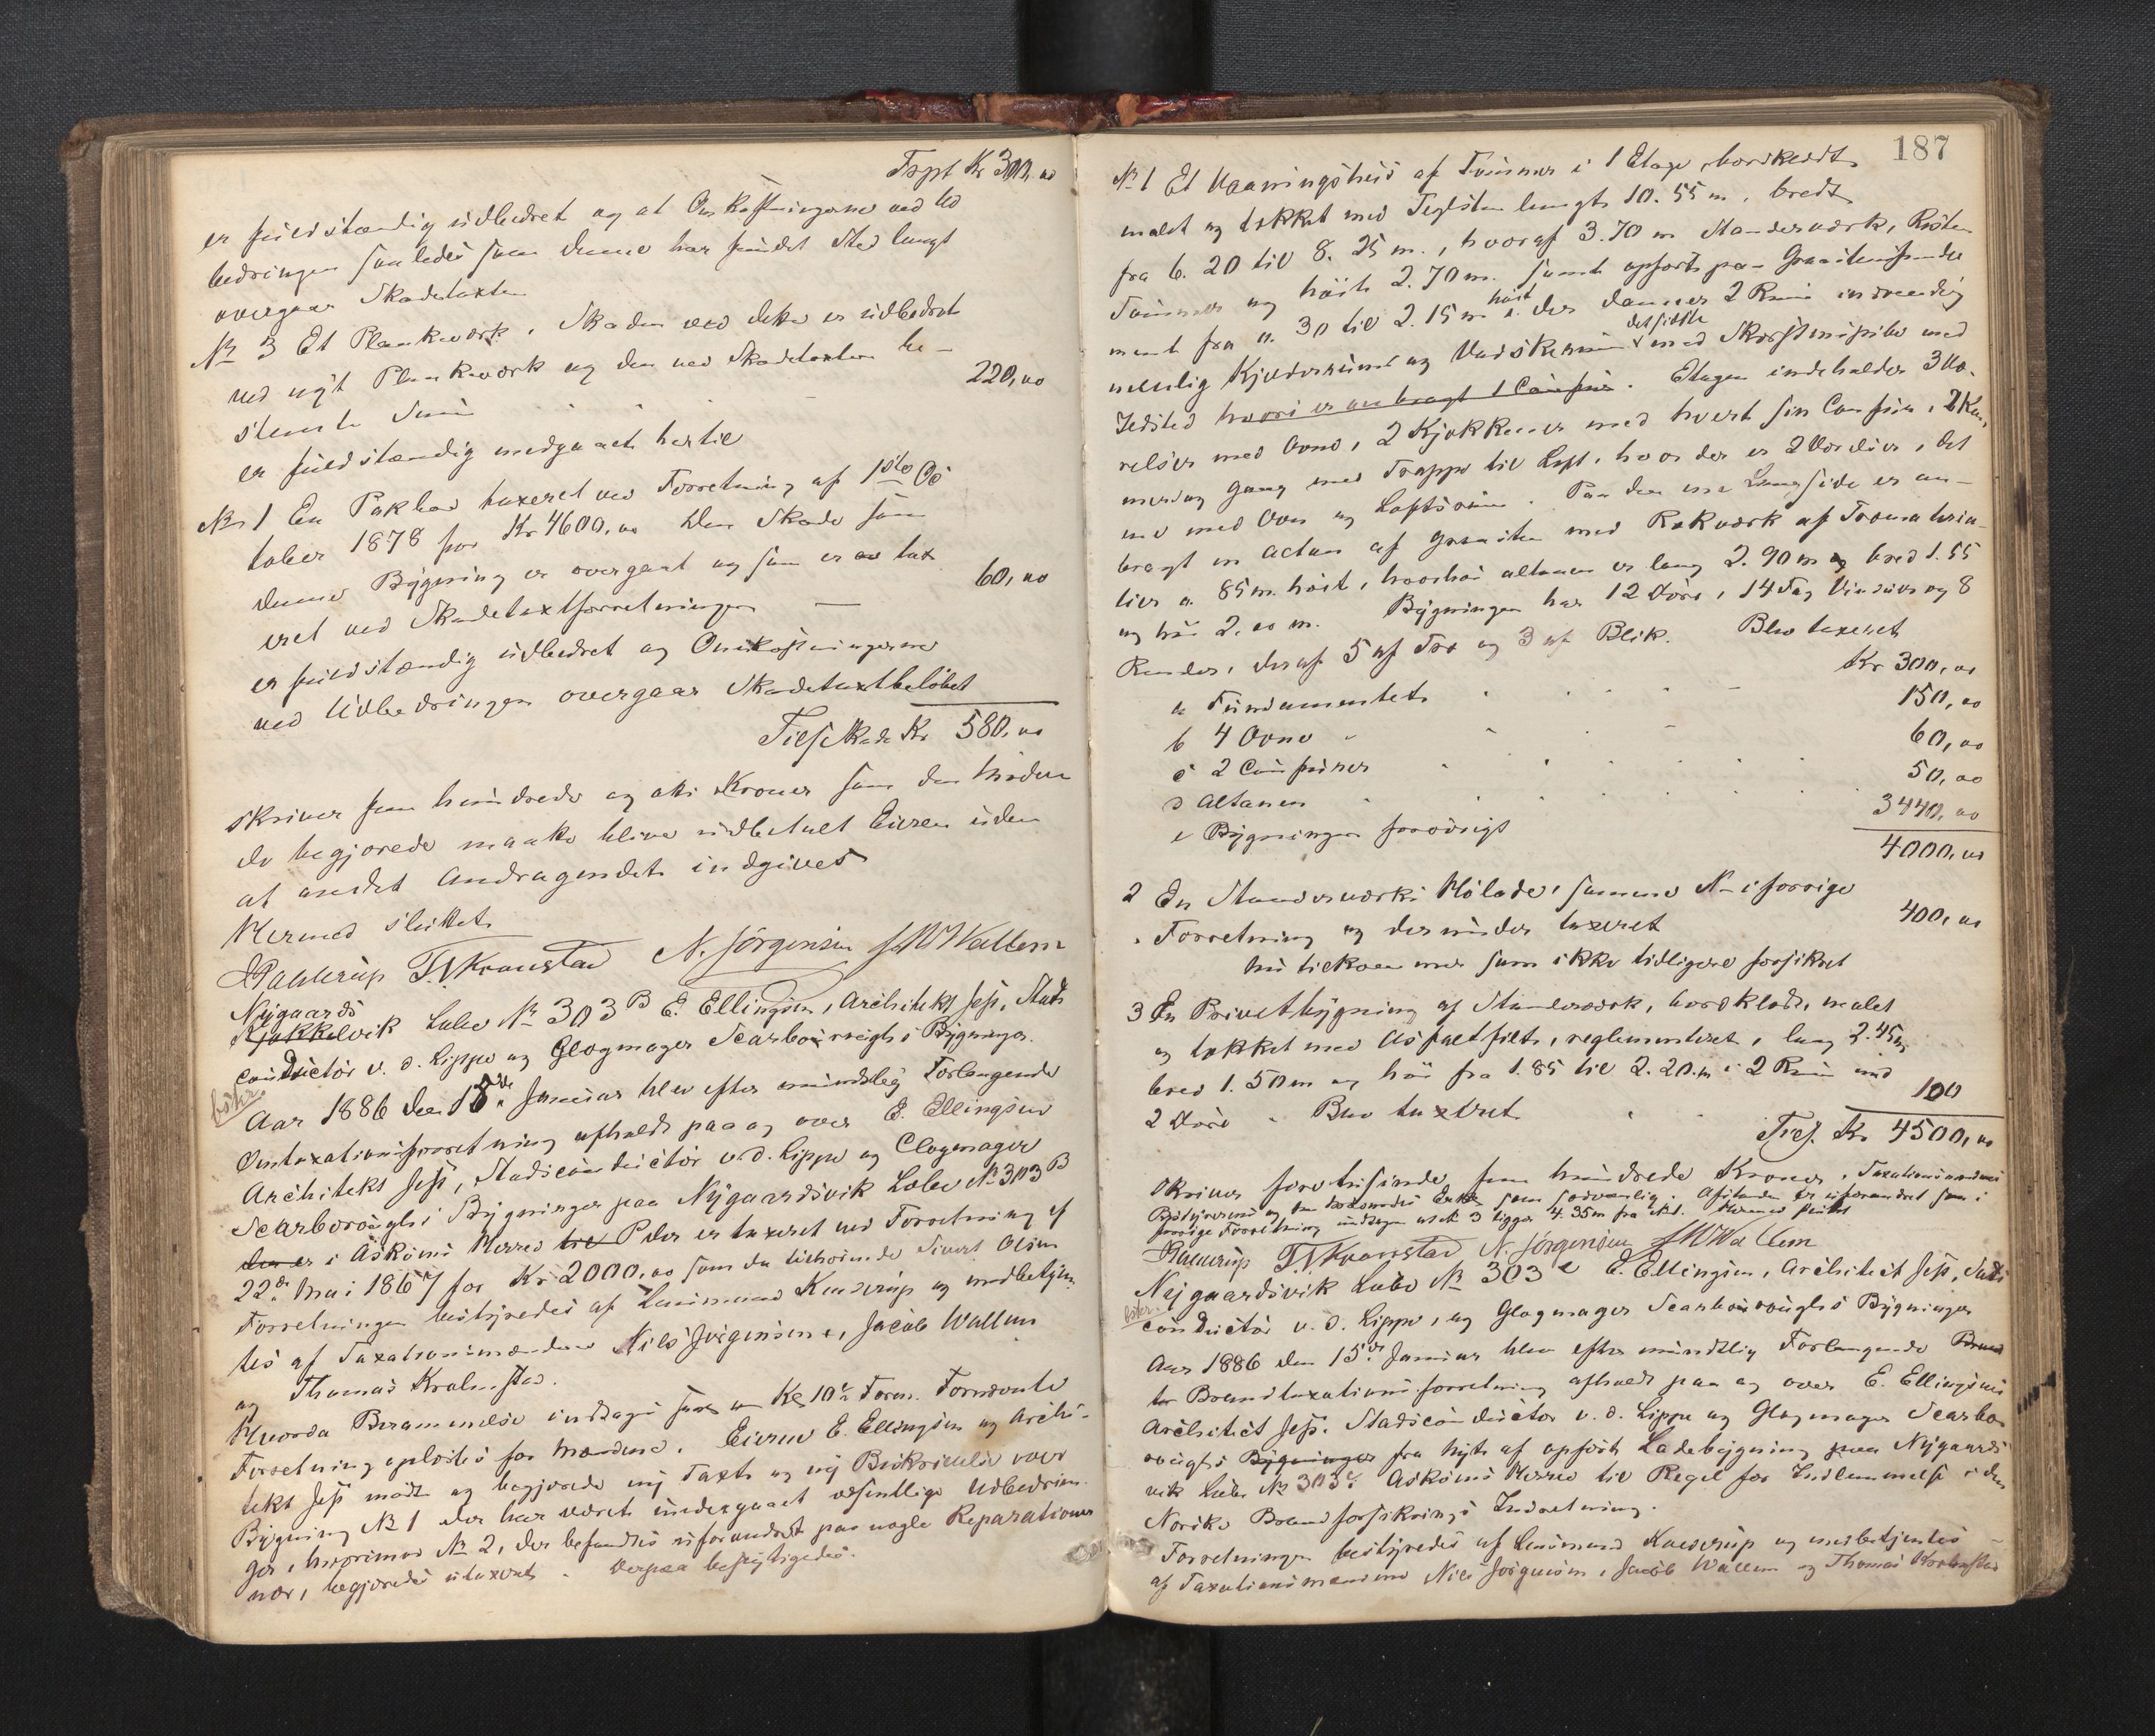 Tspt Kr 300. 00
er fuldstændig udbedret og at Omkostningerne ved Ud
bedringen saaledes som denne har fundet Sted langt
overgaar Skadetaxten
No 3 Et Plankeværk. Skaden ved dette er udbedret
ved nyt Plankeværk og den ved Skadetaxten be-
stemte Sum 220,00
er fuldstændig medgaaet hertil
No 1 En Pakbod taxeret ved Forretning af 1ste Oc
tober 1878 for Kr 4600,00 Den Skade som
denne Bygning er overgaat og som er tax
eret ved Skadetaxtforretningen 60,00
er fuldstændig udbedret og Omkostningerne
ved Udbedringen overgaar Skadetaxtbeløbet
Tilsammen Kr 580,00
skriver fem hundrede og otti Kroner som den
begjærede maatte blive udbetalt Eieren uden
at andet Andragende indgives
Hermed sluttet
T. Kronstad N. Jörgensen Wallem
Nygaards
vik Løbe No 303 B E. Ellingsen, Architekt Jess, Stads
conductør v. d. Lippe og Glogmager Scarboroughs Bygninger.
Aar 1886 den 15de Januar blev efter mundtlig Forlangende
Omtaxationsforretning afholdt paa og over E. Ellingsens
Architekt Jess, Stadsconductør v. d. Lippe og Clogmager
Scarboroughs Bygninger paa Nygaardsvik Løbe No 303 B
i Askøens Herred der er taxeret ved Forretning af
22de Mai 1867 for Kr 2000,00 som da tilhørende Sivert Olsen
Forretningen bestyredes af Lensmand og medbetjen
tes af Taxationsmændene Nils Jørgensen, Jacob Wallem
og Thomas Kralmstad.
Hvorda Berammelse inddages Kl 10 Form. Fornævnte
Forretning oplæstes for Mændene. Eieren E. Ellingsen og Archi-
tekt Jess mødte og begjærede ny Taxt og ny Beskrivelse over
Bygning No 1 der har været undergaaet væsentlige Udbedrin
ger, hvorimod No 2, der befandtes uforandret paa nogle Reparationer
nær, begjæredes utaxeret. Derpaa besigtigedes.
187
No 1 Et Vaaningshus af Tømmer i 1 Etage, bordklædt
malet og tækket med Teglsten langt 10.55 m. bredt
fra 6.20 til 8.25 m., hvoraf 3.70 m Standerværk, Resten
Tømmer og høit 2.70 m. samt opført paa Graastensfunda
ment fra 0.30 til 2.15 m høit, der danner 2 Rum indvendig
nemlig Kjælderrum og Vadskerum det sidste med Skorstenspibe med
Ildsted hvori er anbragt 1 Comfur. Etagen indeholder 3 Væ-
relser med Ovne, 2 Kjøkkener med hvert sin Comfur, 2 Kam
mer og Gang med Trappe til Loft, hvor der er 2 Værelser, det
ene med Ovn og Loftsrum. Paa den ene Langside er an-
bragt en Altan af Graasten med Rækværk af Træmateria
lier 0.85 m høit, hvorhos Altanen er lang 2.90 m og bred 1.55
og høi 2.00 m. Bygningen har 12 Døre, 14 Fag Vinduer og 8
Render, deraf 5 af Træ og 3 af Blik. Blev taxeret
a Fundamentet Kr 300,00
b 4 Ovne 150,00
c 2 Comfurer 60,00
d Altanen 50,00
e Bygningen forøvrigt 3440,00
4000,00
2 En Standerværks Hølade, samme No i forrige
Forretning og derunder taxeret 400,00
Nu tilkommer som ikke tidligere forsikret
3 En Privetbygning af Standerværk, bordklædt, malet
og tækket med Asfaltfilt, reglementeret, lang 2.45 m
bred 1.50 m og høi fra 1.85 til 2.20 m i 2 Rum med
2 Døre. Blev taxeret 100
Tils. Kr 4500,00
skriver firetusinde fem hundrede Kroner. Taxationsmændenes
som sædvanlig. Afstanden er uforandret som i
forrige Forretning undtagen at No 3 ligger 4.35 m fra No 1. Hermed sluttet
T. Kronstad N. Jörgensen Wallem
Nygaardsvik Løbe No 303 c E. Ellingsen, Architect Jess, Stads
conductør v. d. Lippe, og Glogmager Scarboroughs Bygninger
Aar 1886 den 15de Januar blev efter mundtlig Forlangende
Brandtaxationsforretning afholdt paa og over E. Ellingsens
Architect Jess. Stadsconductør v. d. Lippe og Glogmager Scarbo
roughs Bygninger fra Nyt af opført Ladebygning paa Nygaards
vik Løbe No 303 c Askøens Herred til Regel for Indlemmelse i den
Norske Brandforsikrings Indretning.
Forretningen bestyredes af Lensmand og medbetjentes
af Taxationsmændene Nils Jørgensen, Jacob Wallem og Thomas Kralmstad